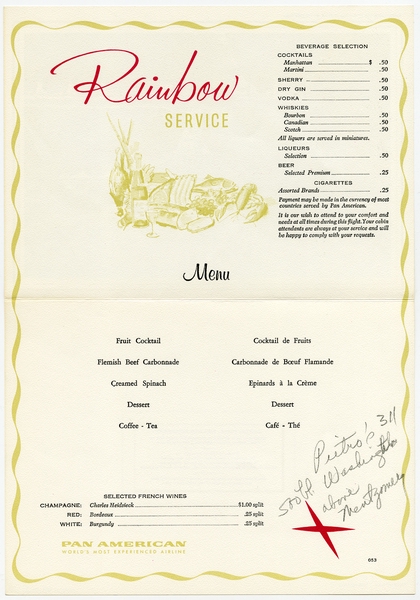 Rainbow
SERVICE
BEVERAGE SELECTION
COCKTAILS
Manhattan $ .50
Martini .50
SHERRY .50
DRY GIN .50
VODKA .50
WHISKIES
Bourbon .50
Canadian .50
Scotch .50
All liquors are served in miniatures.
LIQUEURS
Selection .50
BEER
Selected Premium .25
CIGARETTES
Assorted Brands .25
Payment may be made in the currency of most
countries served by Pan American.
It is our wish to attend to your comfort and
needs at all times during this flight. Your cabin
attendants are always at your service and will
be happy to comply with your requests.
Menu
Fruit Cocktail
Flemish Beef Carbonnade
Creamed Spinach
Dessert
Coffee - Tea
Cocktail de Fruits
Carbonnade de Bœuf Flamande
Epinards à la Crème
Dessert
Café - Thé
Pietro's 311
500 bl. Washington
above
Montgomery
SELECTED FRENCH WINES
CHAMPAGNE: Charles Heidsieck $1.00 split
RED: Bordeaux .25 split
WHITE: Burgundy .25 split
PAN AMERICAN
WORLD'S MOST EXPERIENCED AIRLINE
053